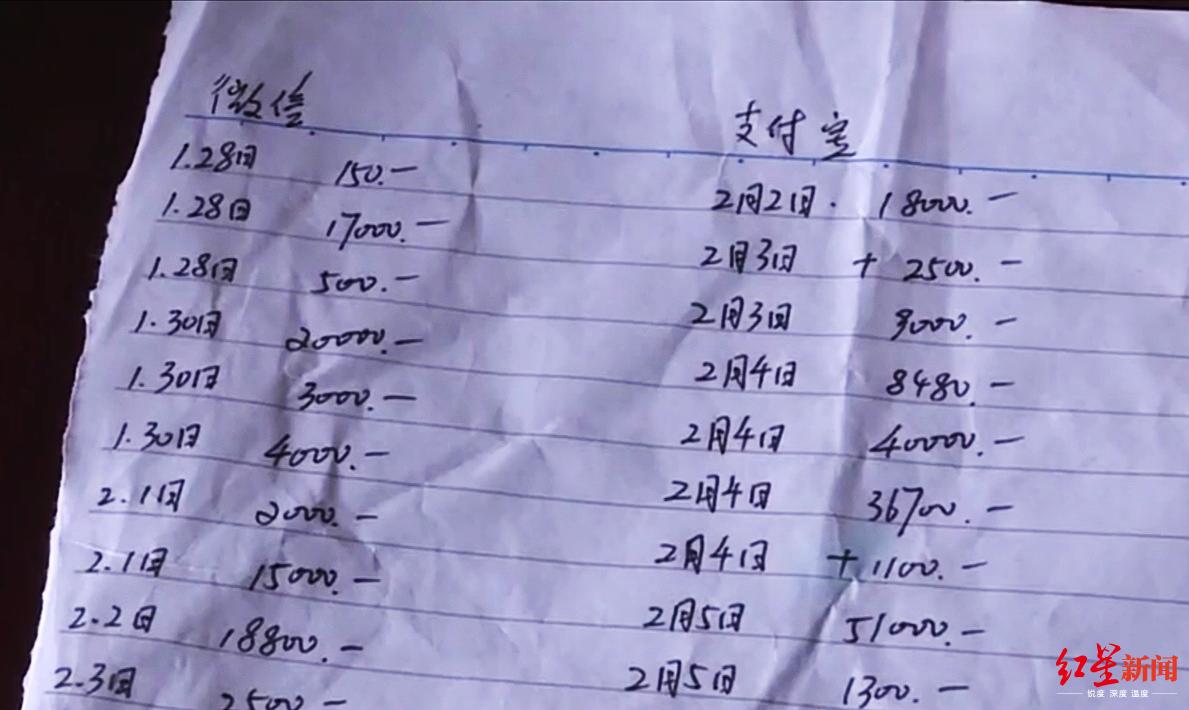 微信
1.28日 150.—
1.28日 17000.—
1.28日 500.—
1.30日 20000.—
1.30日 3000.—
1.30日 4000.—
2.1日 2000.—
2.1日 15000.—
2.2日 18800.—
2.3日 2500.—
支付宝
2月2日. 18000.—
2月3日 + 2500.—
2月3日
2月4日 8480.—
2月4日 40000.—
2月4日 36700.—
2月4日 + 1100.—
2月5日 51000.—
2月5日 1300.—
红星新闻
锐度 深度 温度